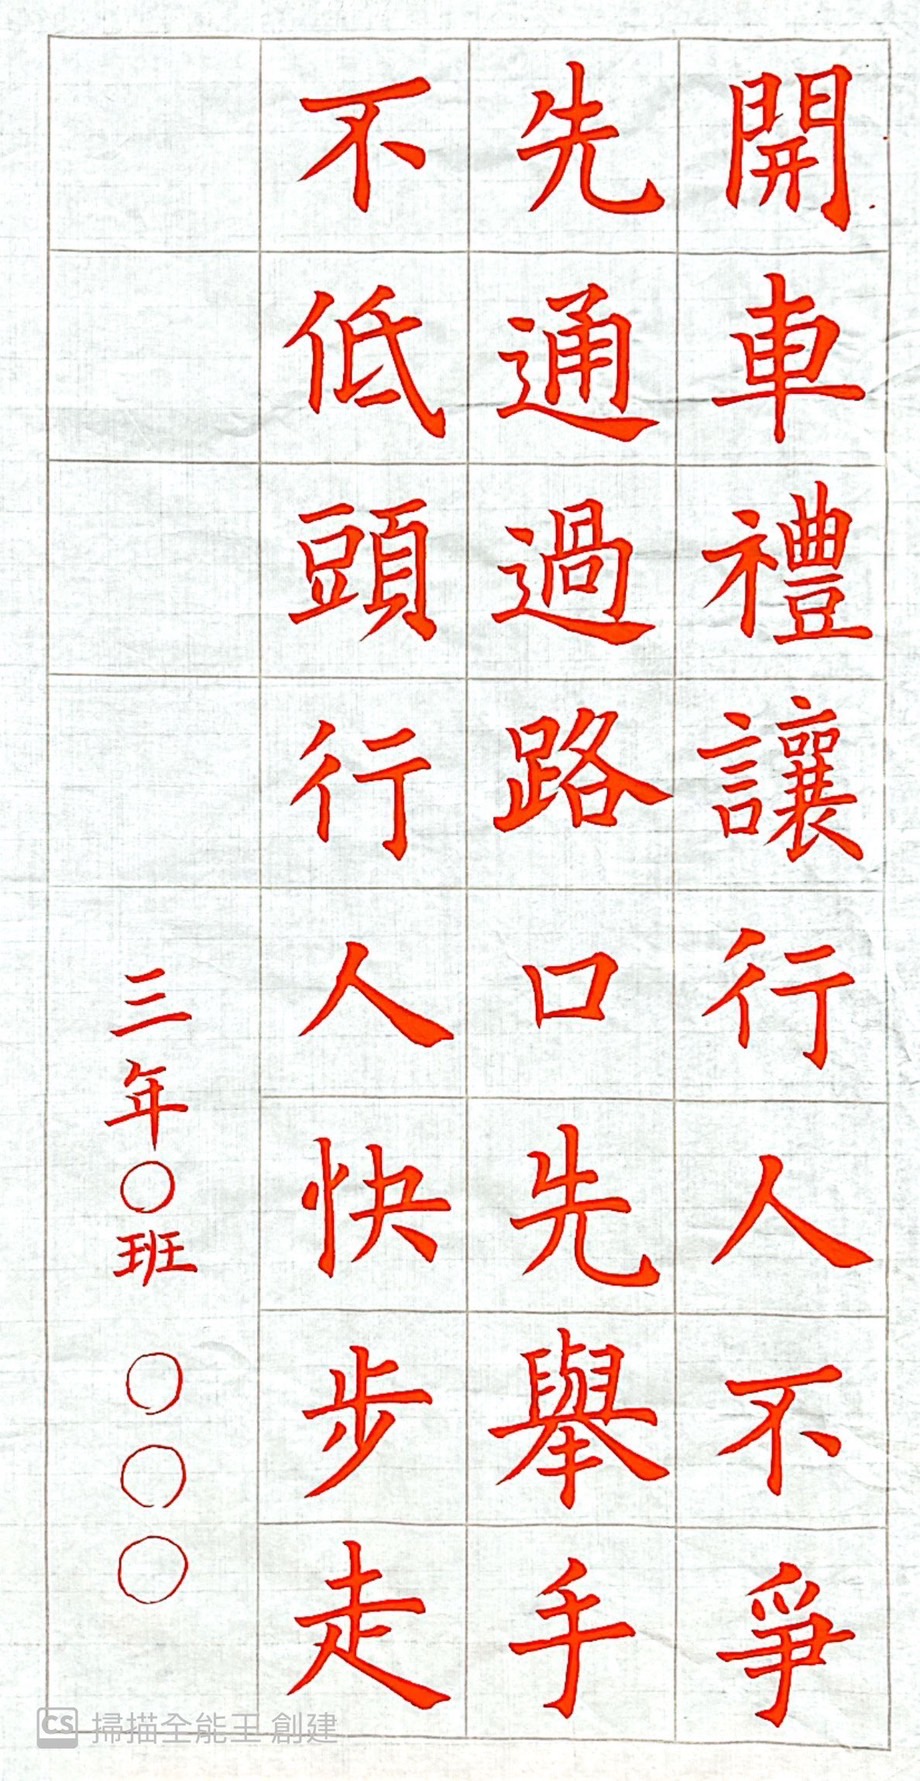 開車禮讓行人不爭
先通過路口先舉手
不低頭行人快步走
三年〇班 〇〇〇
CS 掃描全能王 創建